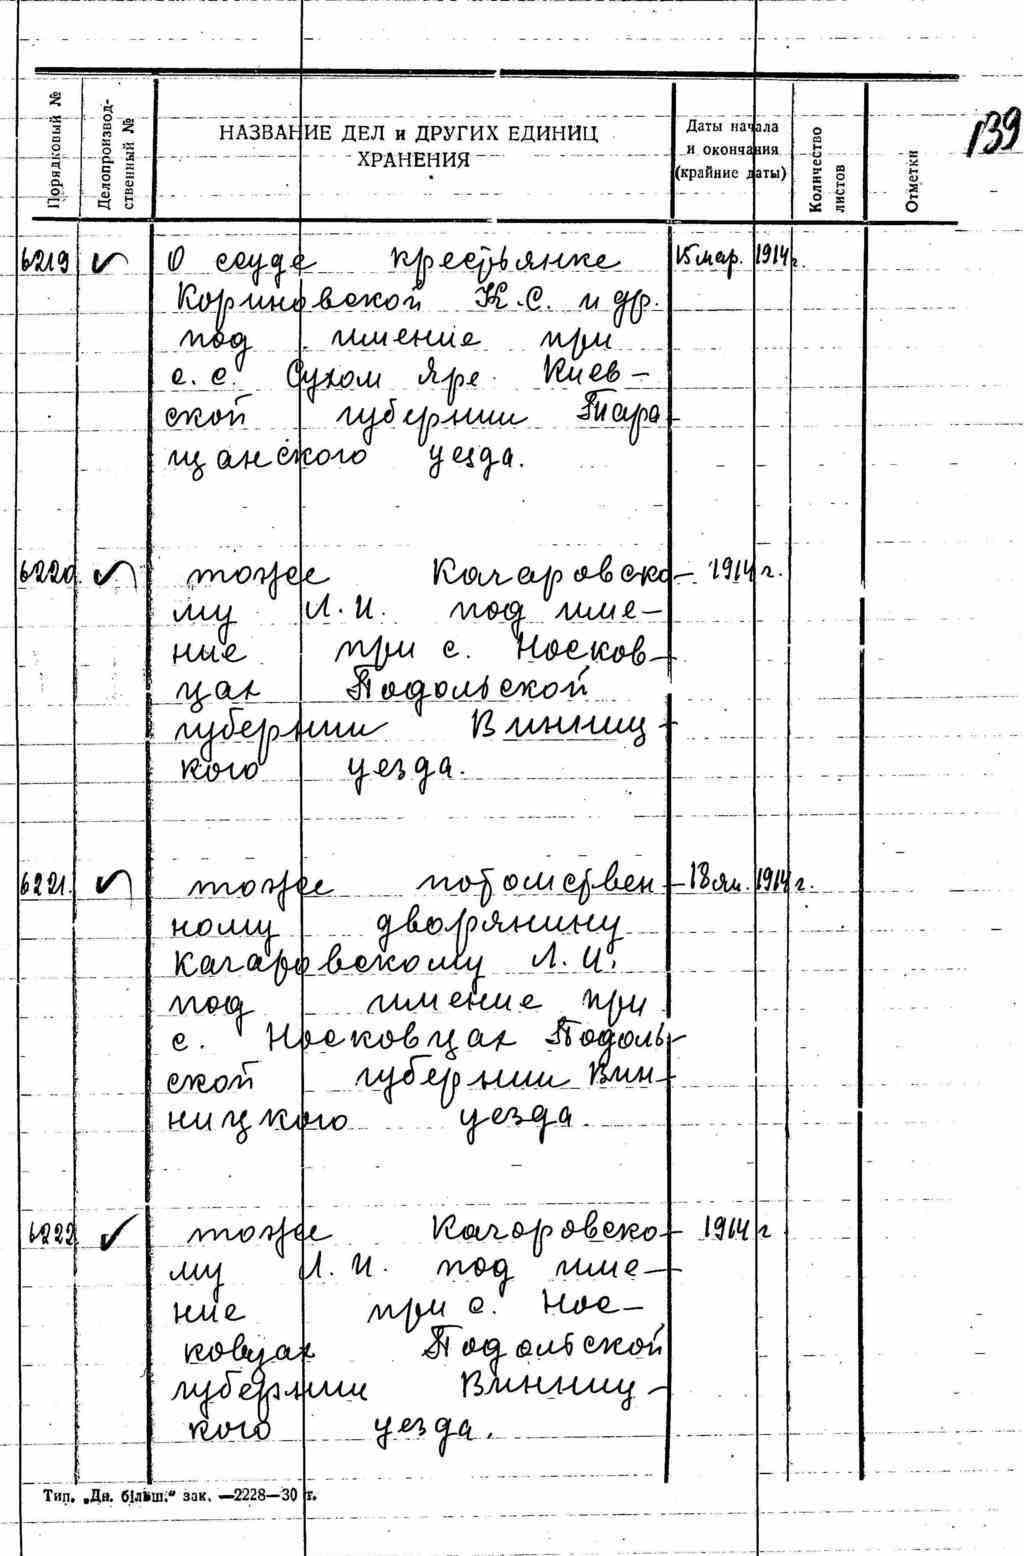 139
Порядковый №
Делопроизвод-
ственный №
НАЗВАНИЕ ДЕЛ и ДРУГИХ ЕДИНИЦ
ХРАНЕНИЯ
Даты начала
и окончания
(крайние даты)
Количество
листов
Отметки
6219 О ссуде крестьянке 15 мар. 1914 г.
Кориновской К.С. и др.
под имение при
с.с. Сухом Яре Киев-
ской губернии Тара
щанского уезда.
6220 тоже Качаровско- 1914 г.
му Л.И. под име-
ние при с. Носков-
цах Подольской
губернии Винниц-
кого уезда.
6221. тоже потомствен- 18 ян. 1914 г.
ному дворянину
Качаровскому Л.И.
под имение при
с. Носковцах Подоль-
ской губернии Вин-
ницкого уезда.
6222 тоже Качоровско- 1914 г
му Л.И. под име-
ние при с. Нос-
ковцах Подольской
губернии Винниц-
кого уезда.
Тип. „Дн. більш." зак. —2228—30 г.